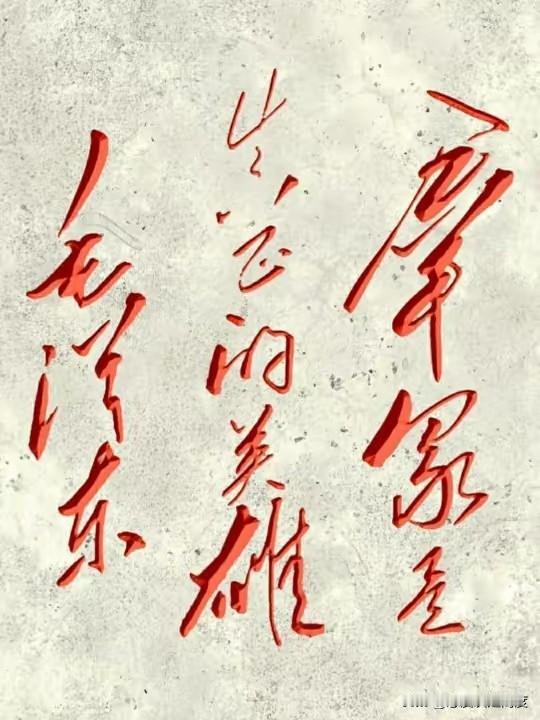 群众是
真正的英雄
毛泽东